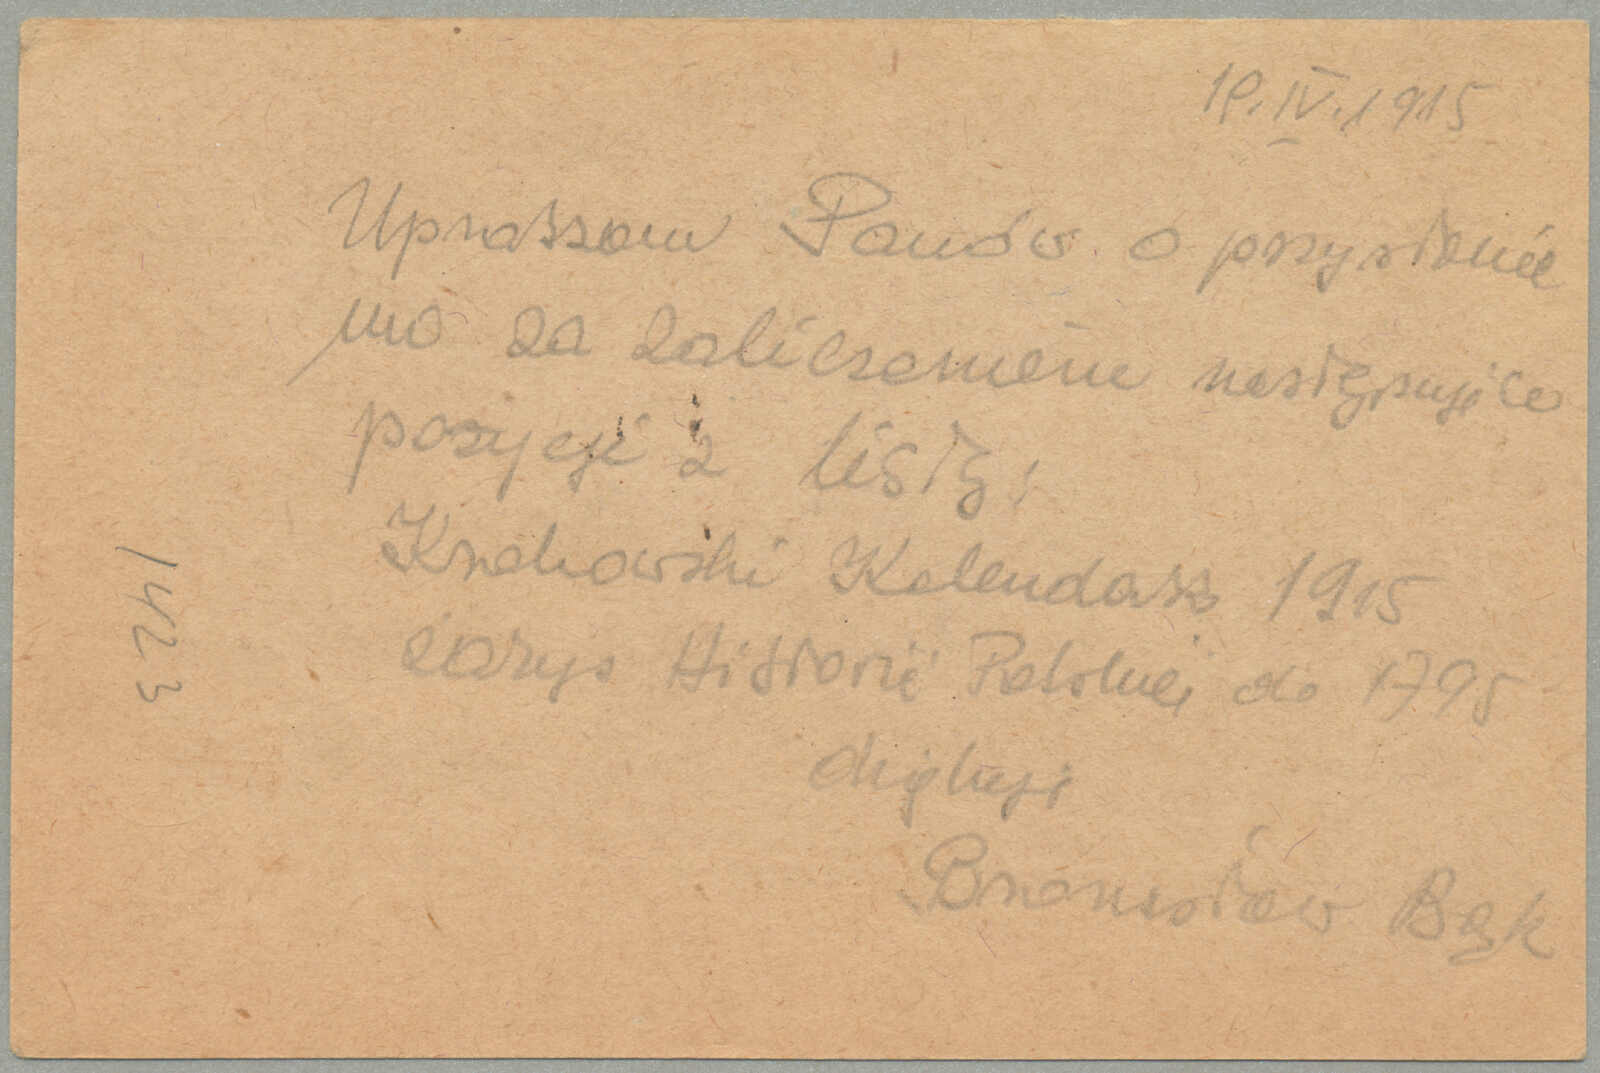 19.IV.1915
Upraszam Panów o przysłanie
mo za zaliczeniem nastempujice
pozycji z listy:
Krakowski Kalendarz 1915
zarys Historii Polskiej do 1795
dziękuji
Bronisław Bąk
1423